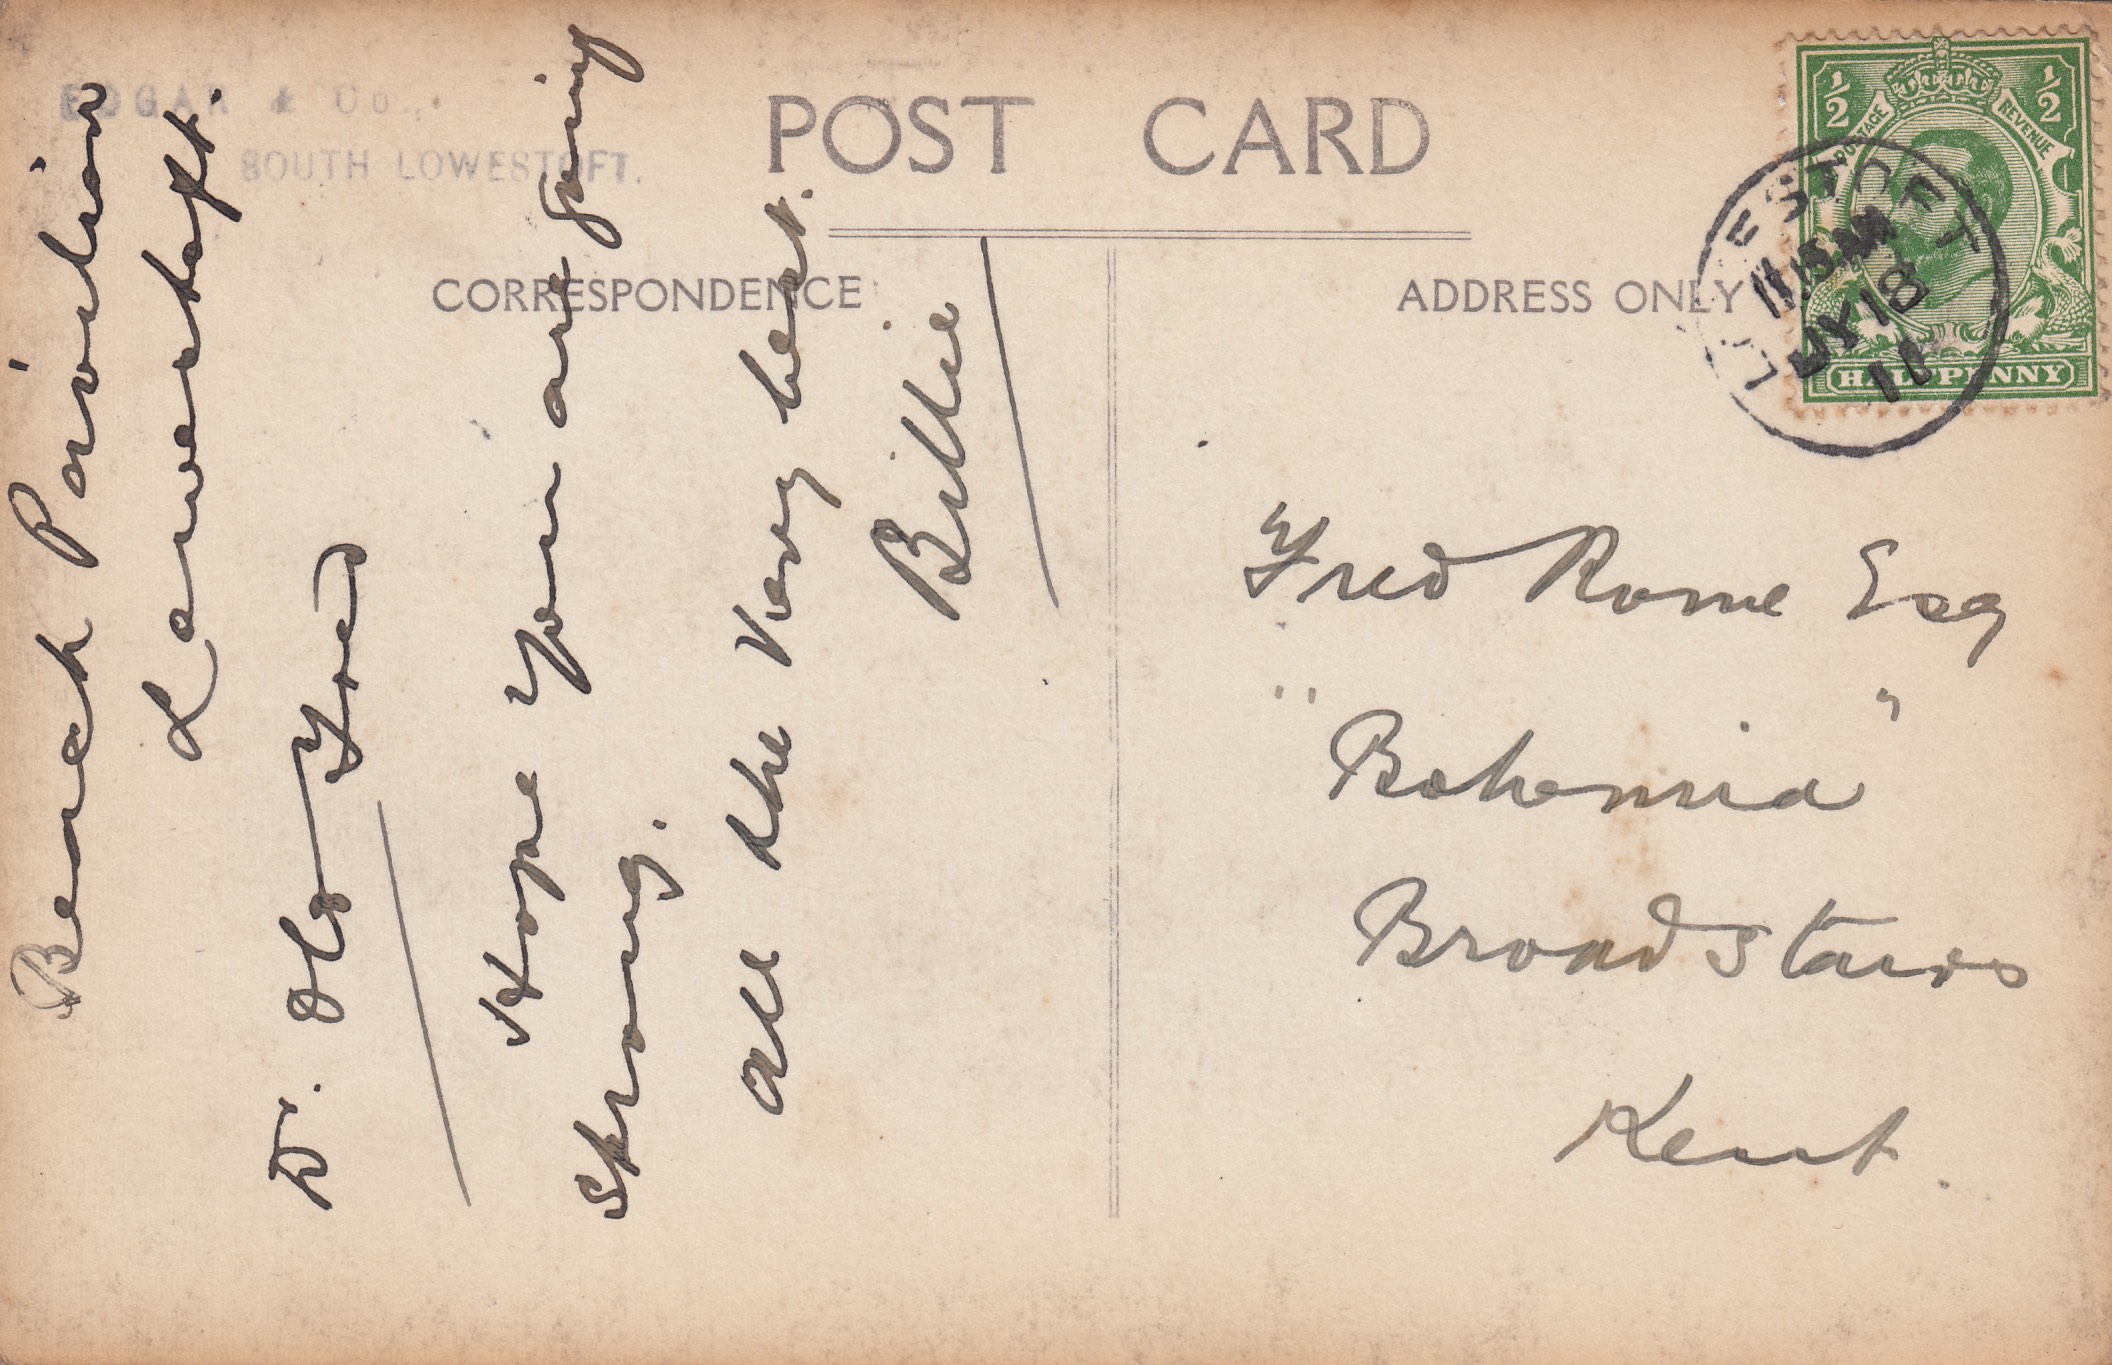 EDGAR & Co.,
SOUTH LOWESTOFT.
POST CARD
CORRESPONDENCE
ADDRESS ONLY
½ ½
POSTAGE REVENUE
HALFPENNY
LOWESTOFT
11.15 AM
JY 18
11
Beach Pavilion
Lowestoft.
D. Old Fred
Hope you are going
strong.
All the very best.
Billie
Fred Rome Esq
"Bohemia"
Broadstairs
Kent.